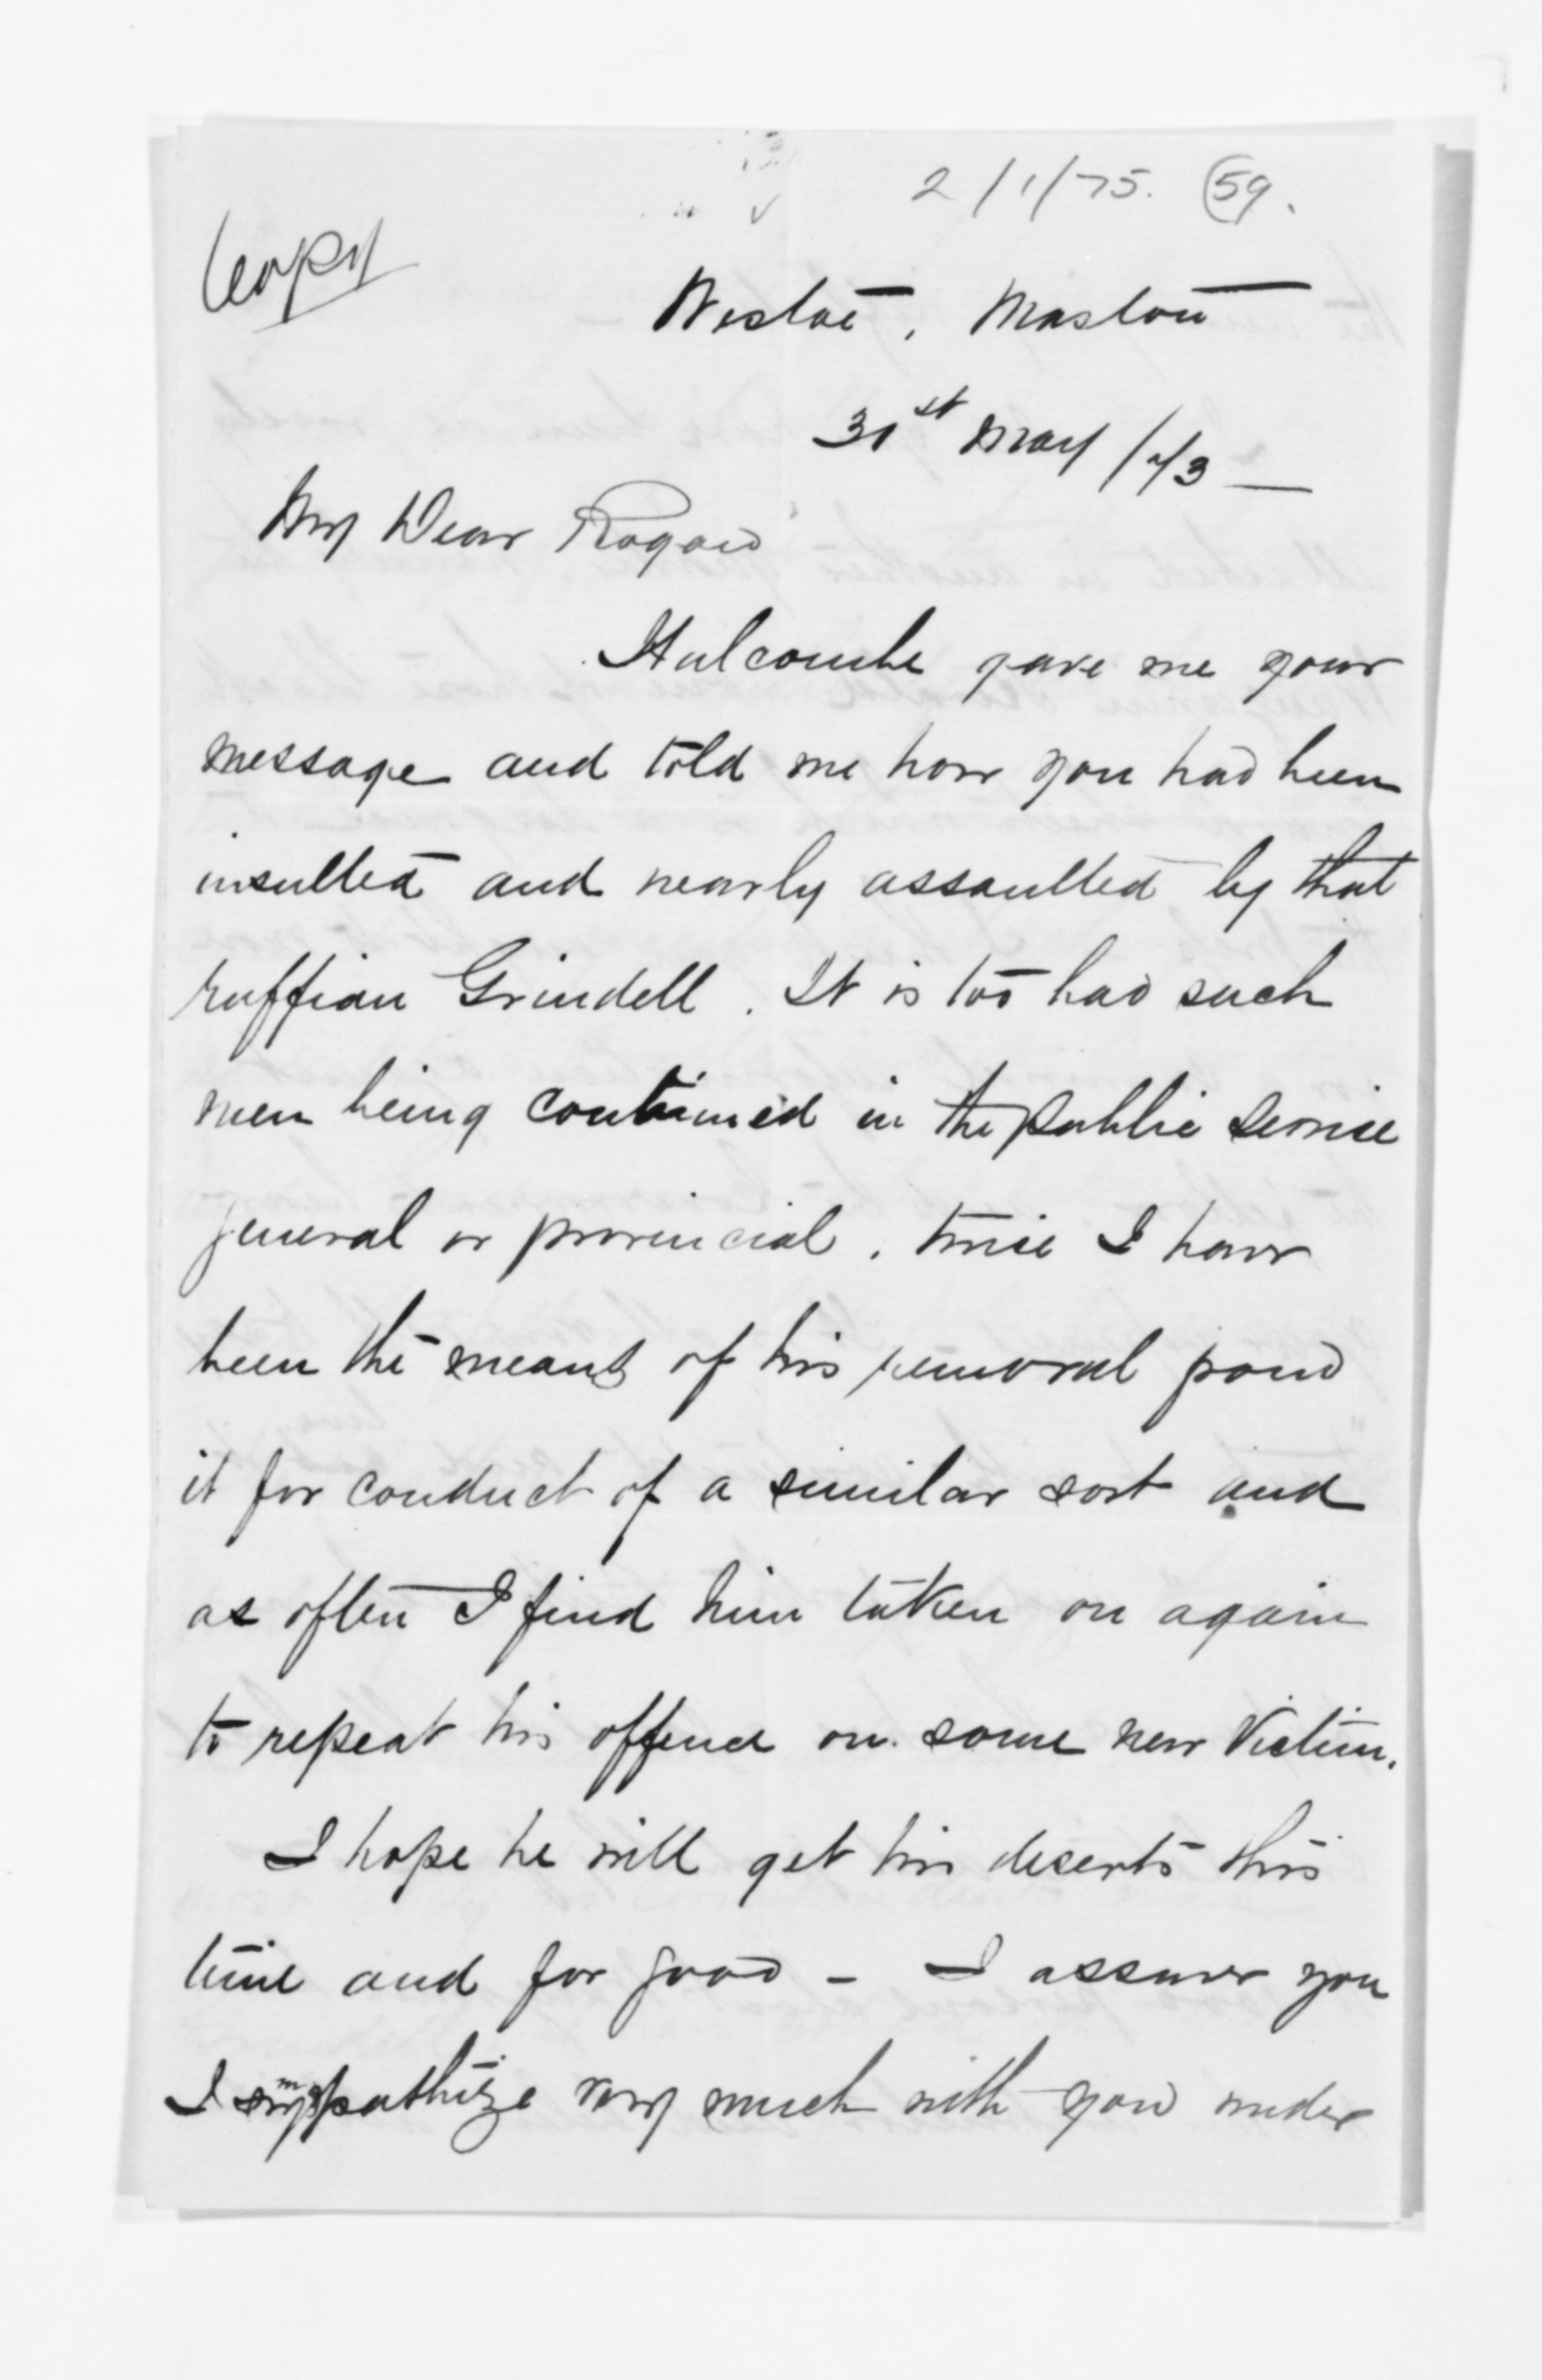 2/1/75. 59.
Copy
Westoe, Marton
31st May /73 —
My Dear Rogan
Halcombe gave me your
message and told me how you had been
insulted and nearly assaulted by that
ruffian Grindell. It is too bad such
men being continued in the public service
general or provincial. twice I have
been the means of his removal from
it for conduct of a similar sort and
as often I find him taken on again
to repeat his offence on some new Victim.
I hope he will get his deserts this
time and for good – I assure you
I sympathize very much with you under